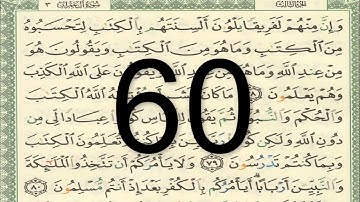 الجزء الثالث سورة آل عمران ٣
وَإِنَّ مِنْهُمْ لَفَرِيقًا يَلْوُۥنَ أَلْسِنَتَهُم بِٱلْكِتَٰبِ لِتَحْسَبُوهُ
مِنَ ٱلْكِتَٰبِ وَمَا هُوَ مِنَ ٱلْكِتَٰبِ وَيَقُولُونَ هُوَ
مِنْ عِندِ ٱللَّهِ وَمَا هُوَ مِنْ عِندِ ٱللَّهِ عَلَى ٱللَّهِ ٱلْكَذِبَ
وَهُمْ يَعْلَمُونَ مَا كَانَ ٱللَّهُ ٱلْكِتَٰبَ
وَٱلْحُكْمَ وَٱلنُّبُوَّةَ ثُمَّ يَقُولَ لِلنَّاسِ كُونُوا۟ عِبَادًا لِّى مِن
دُونِ ٱللَّهِ وَلَٰكِن كُونُوا۟ كُنتُمْ تُعَلِّمُونَ ٱلْكِتَٰبَ
وَبِمَا كُنتُمْ تَدْرُسُونَ ٧٩ وَلَا يَأْمُرَكُمْ أَن تَتَّخِذُوا۟ ٱلْمَلَٰٓئِكَةَ
وَٱلنَّبِيِّۦنَ أَرْبَابًا أَيَأْمُرُكُم بِٱلْكُفْرِ بَعْدَ إِذْ أَنتُم مُّسْلِمُونَ ٨٠
60